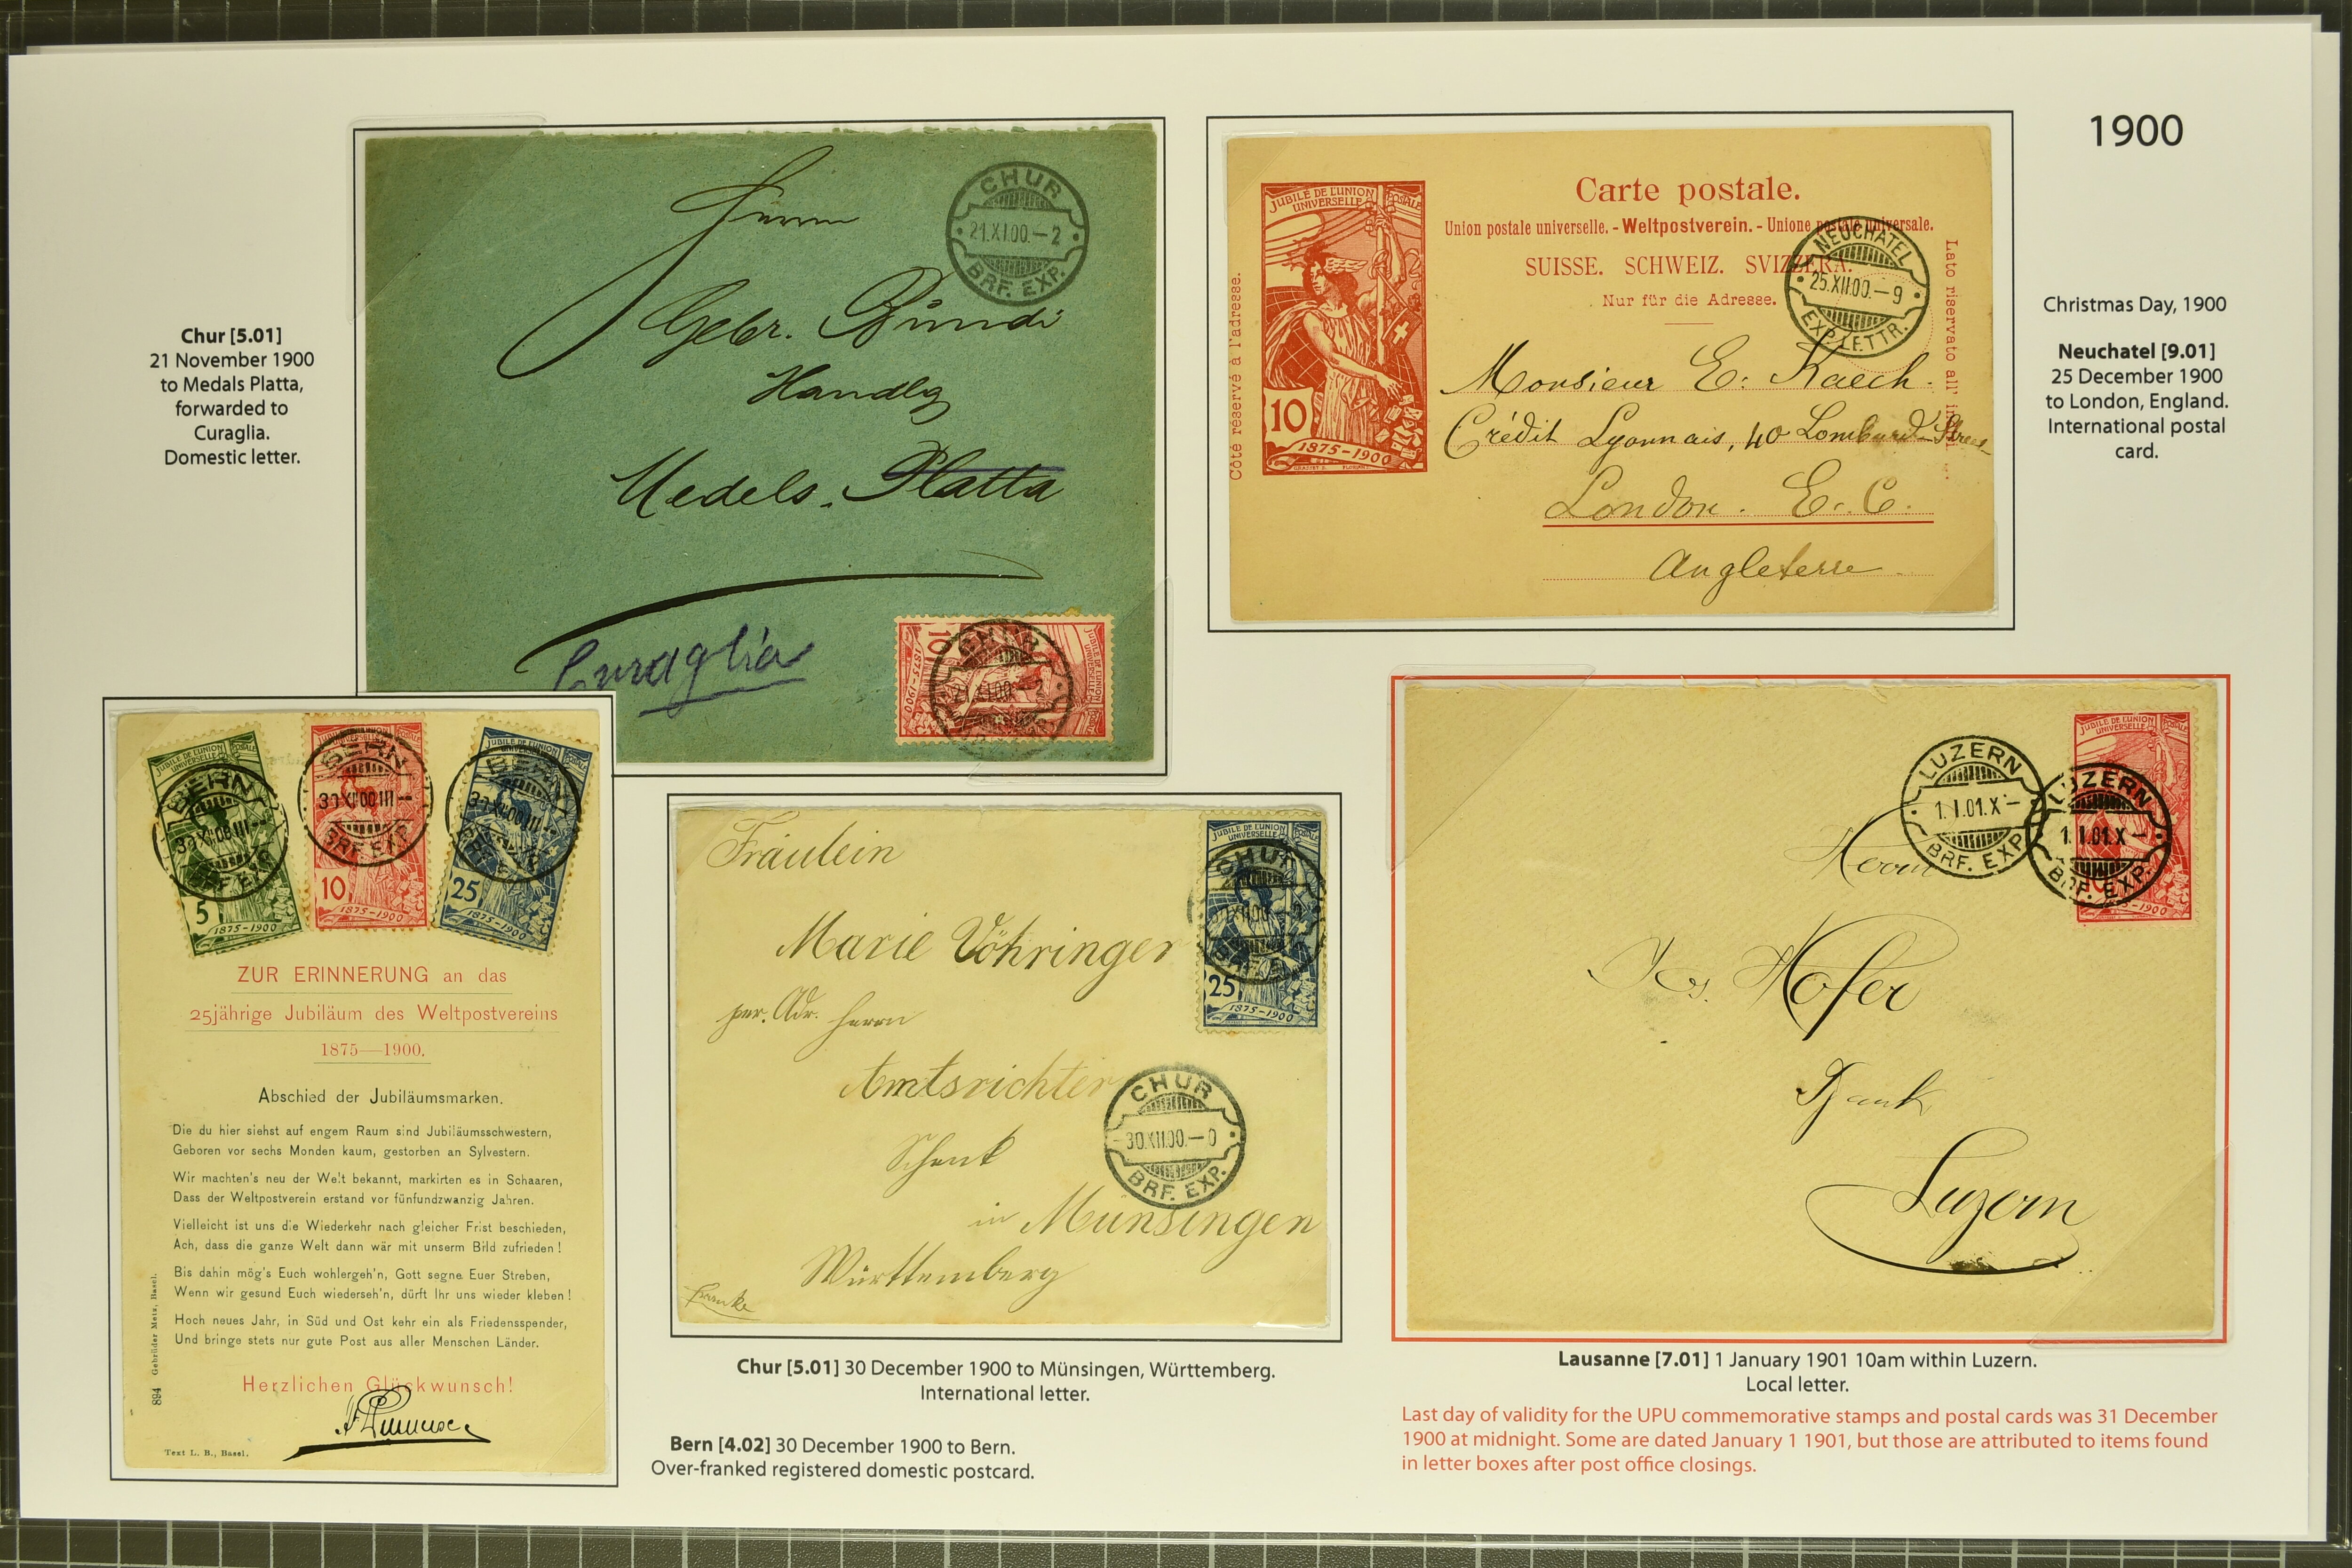 1900
Chur [5.01]
21 November 1900
to Medals Platta,
forwarded to
Curaglia.
Domestic letter.
CHUR
21.XI.00.–2
BRF. EXP.
Herrn
Gebr. Bundi
Handlg
Medels. Platta
Curaglia
10
1875-1900
JUBILÉ DE L'UNION
POSTALE
CHUR
21.XI.00.
JUBILÉ DE L'UNION
UNIVERSELLE
POSTALE
10
1875-1900
Carte postale.
Union postale universelle. - Weltpostverein. - Unione postale universale.
SUISSE. SCHWEIZ. SVIZZERA.
Nur für die Adresse.
Côté réservé à l'adresse.
Lato riservato all'
NEUCHATEL
25.XII.00.–9
EXP. LETTR.
Monsieur E. Kaech.
Crédit Lyonnais, 40 Lombard Street
London. E. C.
Angleterre
Christmas Day, 1900
Neuchatel [9.01]
25 December 1900
to London, England.
International postal
card.
JUBILÉ DE L'UNION
UNIVERSELLE
POSTALE
BERN
30.XII.00 III –
BRF. EXP.
5
1875-1900
BERN
30.XII.00 III –
BRF. EXP.
10
1875-1900
JUBILÉ DE L'UNION
BERN
30.XII.00 III –
25
1875-1900
ZUR ERINNERUNG an das
25jährige Jubiläum des Weltpostvereins
1875—1900.
Abschied der Jubiläumsmarken.
Die du hier siehst auf engem Raum sind Jubiläumsschwestern,
Geboren vor sechs Monden kaum, gestorben an Sylvestern.
Wir machten's neu der Welt bekannt, markirten es in Schaaren,
Dass der Weltpostverein erstand vor fünfundzwanzig Jahren.
Vielleicht ist uns die Wiederkehr nach gleicher Frist beschieden,
Ach, dass die ganze Welt dann wär mit unserm Bild zufrieden!
Bis dahin mög's Euch wohlergeh'n, Gott segne Euer Streben,
Wenn wir gesund Euch wiederseh'n, dürft Ihr uns wieder kleben!
Hoch neues Jahr, in Süd und Ost kehr ein als Friedensspender,
Und bringe stets nur gute Post aus aller Menschen Länder.
Herzlichen Glückwunsch!
894 Gebrüder Metz, Basel.
Text L. B., Basel.
Fräulein
Marie Vöhringer
per. Adr. Herrn
Amtsrichter
Schenk
in Münsingen
Württemberg
Franke
JUBILÉ DE L'UNION
UNIVERSELLE
POSTALE
CHUR
25
1875-1900
CHUR
30.XII.00.–0
BRF. EXP.
Chur [5.01] 30 December 1900 to Münsingen, Württemberg.
International letter.
Bern [4.02] 30 December 1900 to Bern.
Over-franked registered domestic postcard.
JUBILÉ DE L'UNION
UNIVERSELLE
POSTALE
LUZERN
1.I.01.X –
BRF. EXP.
LUZERN
1.I.01.X –
BRF. EXP.
Herrn
Hofer
Bank
Luzern
Lausanne [7.01] 1 January 1901 10am within Luzern.
Local letter.
Last day of validity for the UPU commemorative stamps and postal cards was 31 December
1900 at midnight. Some are dated January 1 1901, but those are attributed to items found
in letter boxes after post office closings.